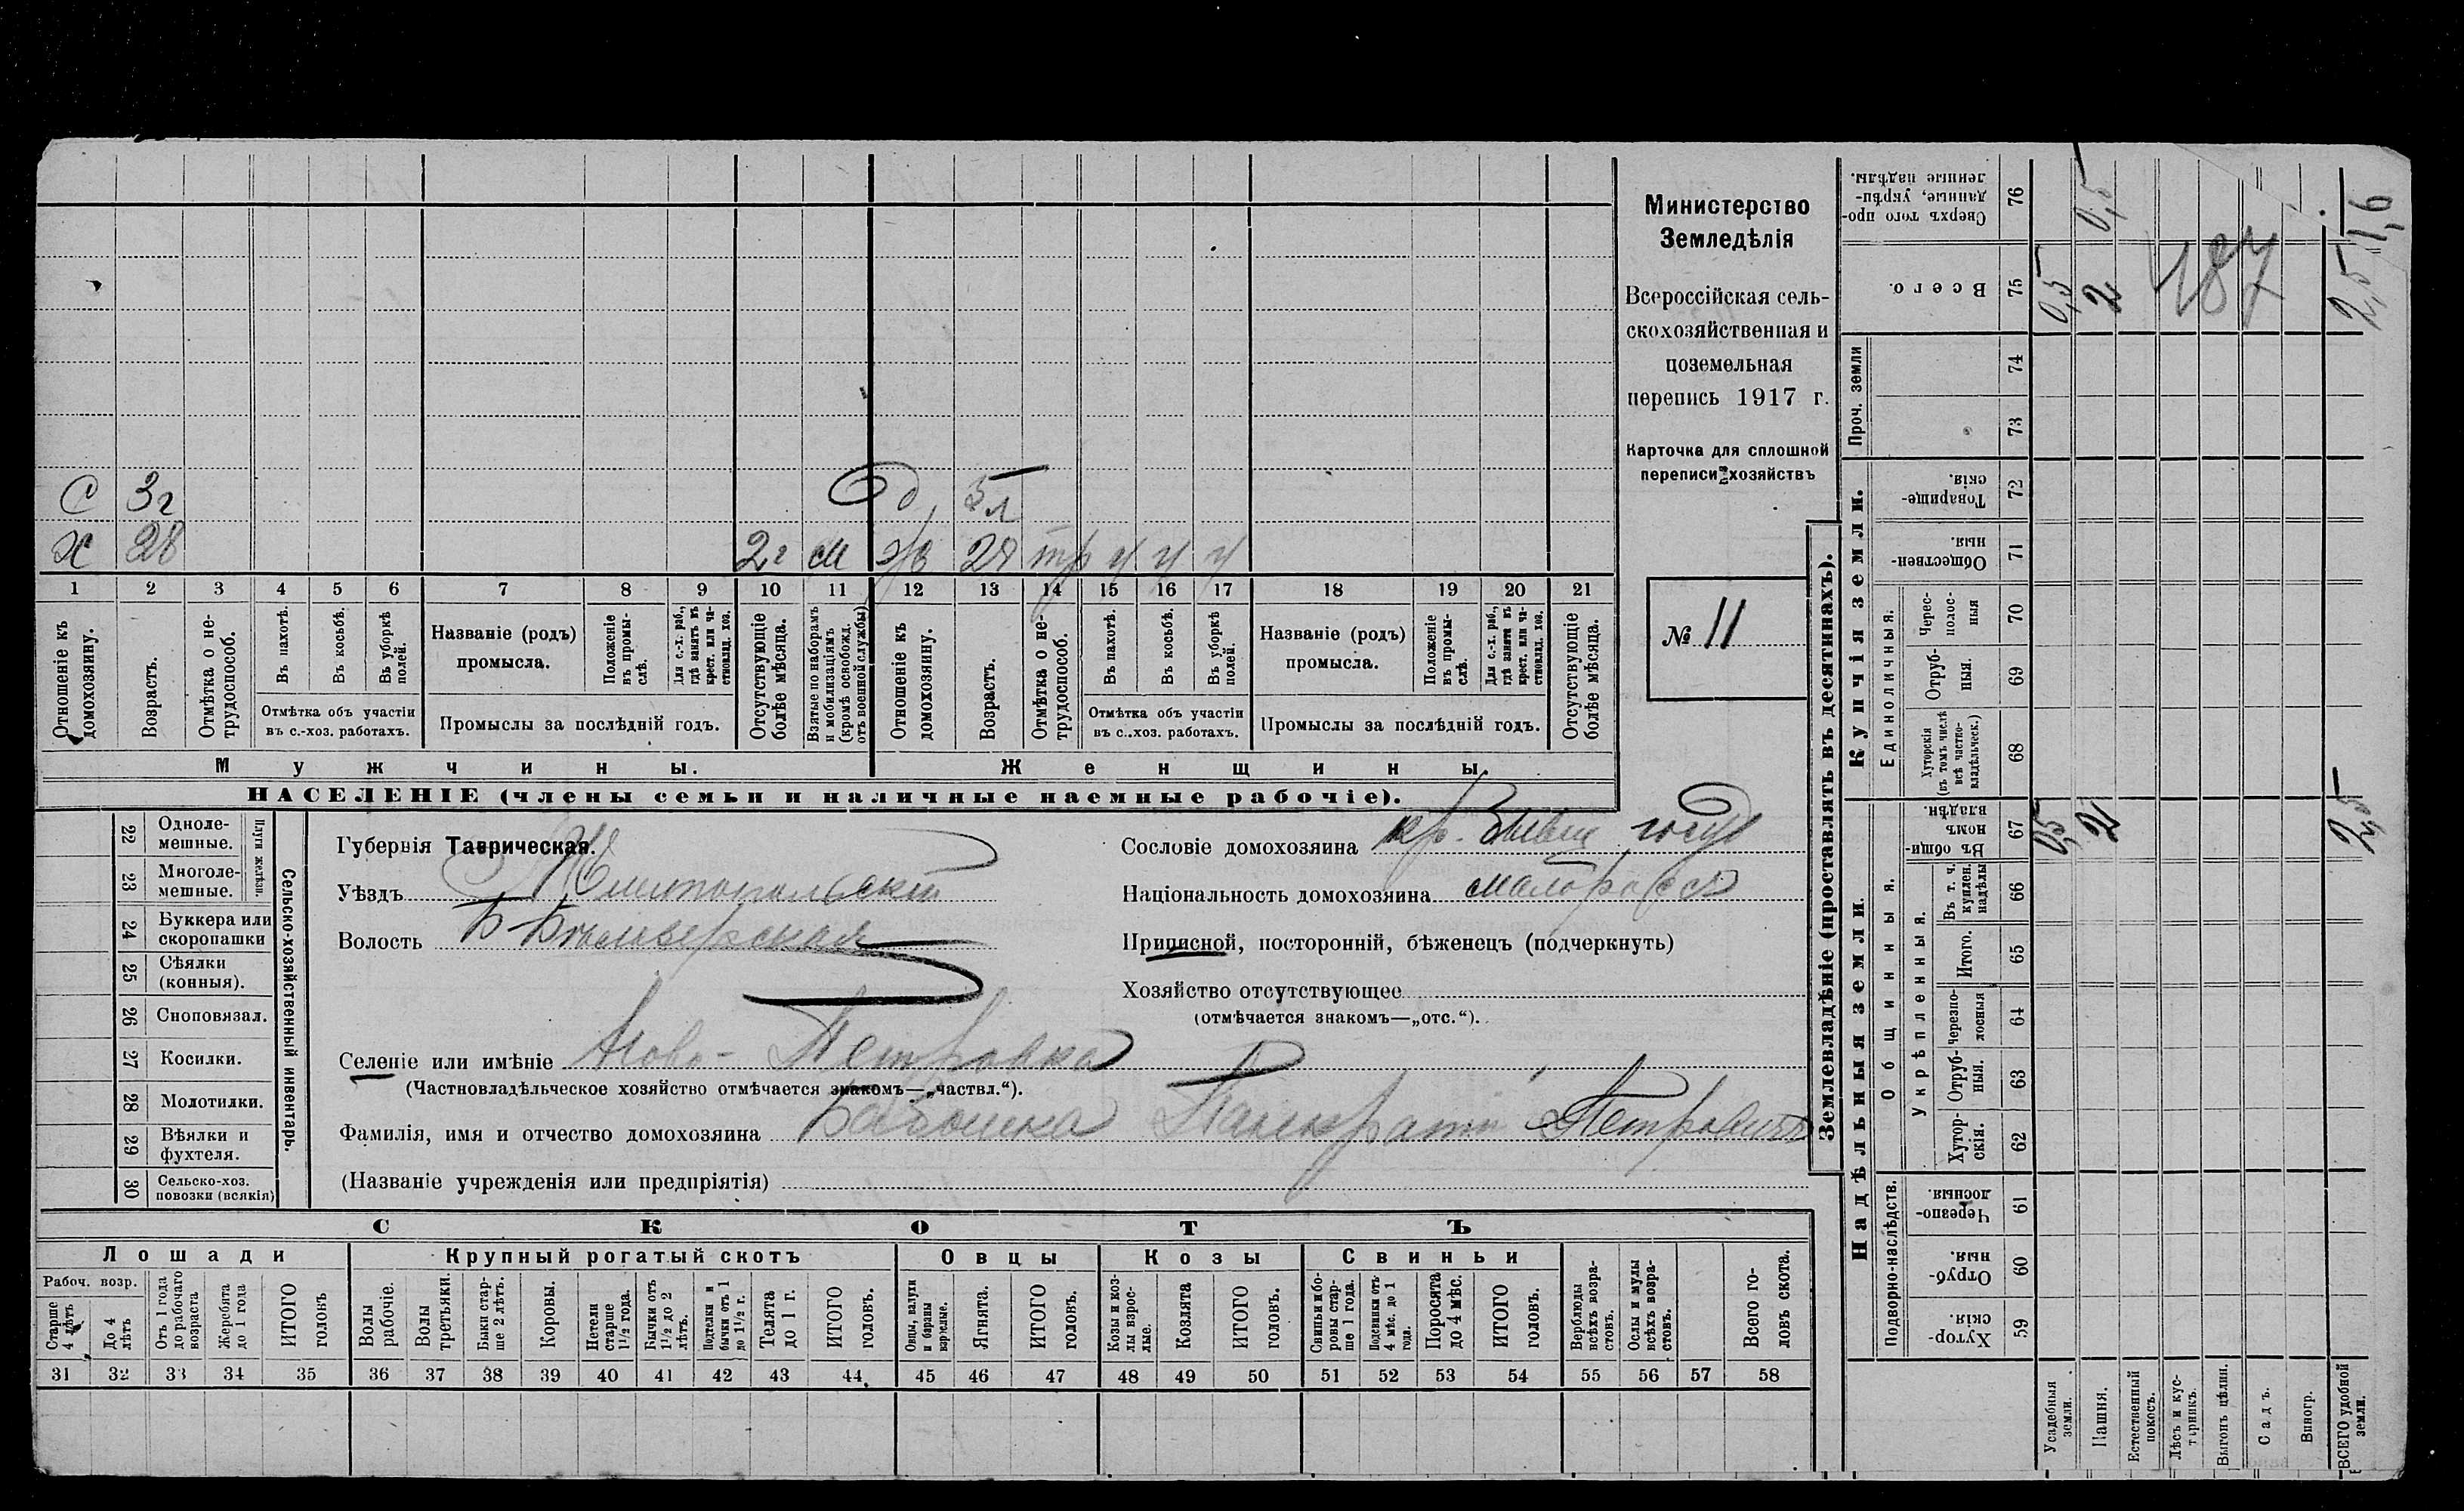 С 3г д 5л
х 28 2г м ж 28 тр ч ч ч
1 2 3 4 5 6 7 8 9 10 11 12 13 14 15 16 17 18 19 20 21
Отношеніе къ домохозяину.
Возрастъ.
Отмѣтка о не-
трудоспособ.
Въ пахотѣ.
Въ косьбѣ.
Въ уборкѣ полей.
Отмѣтка объ участіи
въ с.-хоз. работахъ.
Названіе (родъ)
промысла.
Положеніе
въ промы-
слѣ.
Для с.-х. раб.,
гдѣ занятъ въ
крест. или ча-
стновлад. хоз.
Промыслы за послѣдній годъ.
Отсутствующіе
болѣе мѣсяца.
Взятые по наборамъ
и мобилизаціямъ
(кромѣ освобожд.
отъ военной службы)
Отношеніе къ
домохозяину.
Возрастъ.
Отмѣтка о не-
трудоспособ.
Въ пахотѣ.
Въ косьбѣ.
Въ уборкѣ
полей.
Отмѣтка объ участіи
въ с.-хоз. работахъ.
Названіе (родъ)
промысла.
Положеніе
въ промы-
слѣ.
Для с.-х. раб.,
гдѣ занята въ
крест. или ча-
стновлад. хоз.
Промыслы за послѣдній годъ.
Отсутствующіе
болѣе мѣсяца.
Мужчины.
Женщины.
НАСЕЛЕНІЕ (члены семьи и наличные наемные рабочіе).
Министерство
Земледѣлія
Всероссійская сель-
скохозяйственная и
поземельная
перепись 1917 г.
Карточка для сплошной
переписи хозяйствъ
№ 11
22 Одноле-
мешные.
23 Многоле-
мешные.
Плуги желѣзн.
24 Буккера или
скоропашки
25 Сѣялки
(конныя).
26 Сноповязал.
27 Косилки.
28 Молотилки.
29 Вѣялки и
фухтеля.
30 Сельско-хоз.
повозки (всякія)
Сельско-хозяйственный инвентарь.
Губернія Таврическая.
Уѣздъ Мелитопольскій
Волость Б-Бѣлозерская
Селеніе или имѣніе Ново-Петровка
(Частновладѣльческое хозяйство отмѣчается знакомъ—„частвл.“).
Фамилія, имя и отчество домохозяина Бабошка Панкратій Петровичъ
(Названіе учрежденія или предпріятія)
Сословіе домохозяина кр. бывш госуд
Національность домохозяина малоросс
Приписной, посторонній, бѣженецъ (подчеркнуть)
Хозяйство отсутствующее
(отмѣчается знакомъ—„отс.“).
СКОТЪ
Лошади
Крупный рогатый скотъ
Овцы
Козы
Свиньи
Рабоч. возр.
Старше
4 лѣтъ
До 4
лѣтъ
Отъ 1 года
до рабочаго
возраста
Жеребята
до 1 года
ИТОГО
головъ
Волы
рабочіе.
Волы
третьяки.
Быки стар-
ше 2 лѣтъ.
Коровы.
Нетели
старше
1½ года.
Бычки отъ
1½ до 2
лѣтъ.
Подтелки и
бычки отъ 1
до 1½ г.
Телята
до 1 г.
ИТОГО
головъ.
Овцы, валухи
и бараны
взрослые.
Ягнята.
ИТОГО
головъ.
Козы и коз-
лы взрос-
лые.
Козлята
ИТОГО
головъ.
Свиньи и бо-
ровы стар-
ше 1 года.
Подсвинки отъ
4 мѣс. до 1
года.
Поросята
до 4 мѣс.
ИТОГО
головъ.
Верблюды
всѣхъ возра-
стовъ.
Ослы и мулы
всѣхъ возра-
стовъ.
Всего го-
ловъ скота.
31 32 33 34 35 36 37 38 39 40 41 42 43 44 45 46 47 48 49 50 51 52 53 54 55 56 57 58
Землевладѣніе (проставлять въ десятинахъ).
Надѣльныя земли.
Купчія земли.
Проч. земли
Подворно-наслѣдств.
Общинныя.
Укрѣпленныя.
Единоличныя.
Сверхъ того про-
данные, укрѣп-
ленные надѣлы.
76
Всего.
75
74
73
Товарище-
скія.
72
Обществен-
ныя.
71
Черес-
полос-
ныя
70
Отруб-
ныя.
69
Хуторскія
(въ томъ числѣ
всѣ частно-
владѣльческ.)
68
Въ общин-
номъ
владѣн.
67
Въ т. ч.
куплен.
надѣлы
66
Итого.
65
Черезпо-
лосныя
64
Отруб-
ныя.
63
Хутор-
скія.
62
Черезпо-
лосныя.
61
Отруб-
ныя.
60
Хутор-
скія.
59
Усадебныя
земли.
Пашня.
Естественный
покосъ.
Лѣсъ и кус-
тарникъ.
Выгонъ цѣлин.
Садъ.
Виногр.
ВСЕГО удобной
земли.
0,5
0,5 2 487 2,5
1,6
0,5 2 2,5